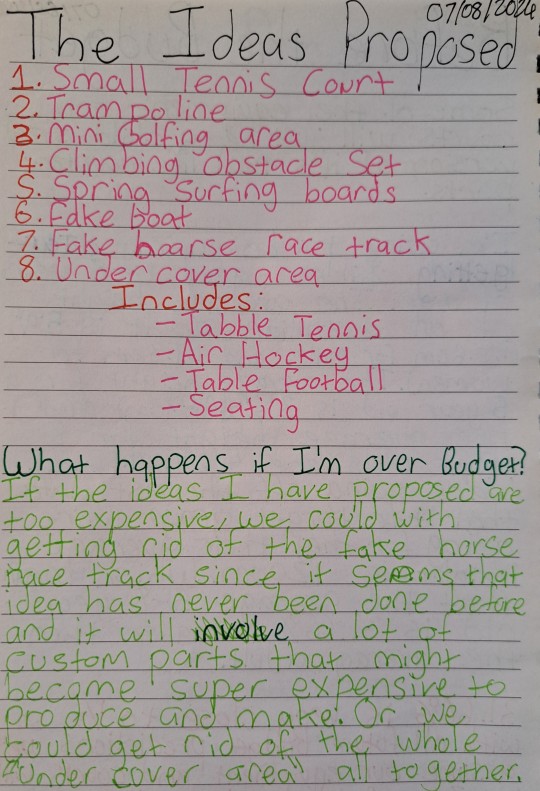 07/08/2024
The Ideas Proposed
1. Small Tennis Court
2. Trampoline
3. Mini Golfing area
4. Climbing obstacle set
5. Spring surfing boards
6. Fake boat
7. Fake hoarse race track
8. Under cover area
Includes:
- Tabble Tennis
- Air Hockey
- Table Football
- Seating
What happens if I'm over Budget?
If the ideas I have proposed are
too expensive, we could with
getting rid of the fake horse
race track since it seems that
idea has never been done before
and it will involve a lot of
custom parts that might
become super expensive to
produce and make. Or we
could get rid of the whole
"Under cover area" all together.